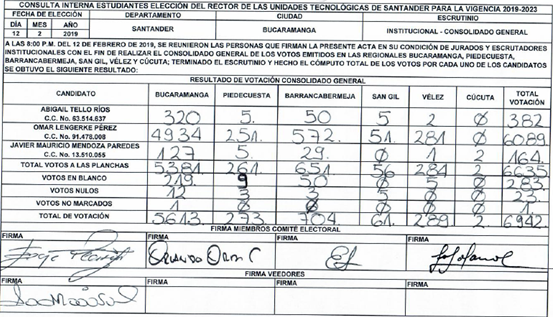 CONSULTA INTERNA ESTUDIANTES ELECCIÓN DEL RECTOR DE LAS UNIDADES TECNOLÓGICAS DE SANTANDER PARA LA VIGENCIA 2019-2023
FECHA DE ELECCIÓN DEPARTAMENTO CIUDAD ESCRUTINIO
DÍA MES AÑO SANTANDER BUCARAMANGA INSTITUCIONAL - CONSOLIDADO GENERAL
12 2 2019
A LAS 8:00 P.M. DEL 12 DE FEBRERO DE 2019, SE REUNIERON LAS PERSONAS QUE FIRMAN LA PRESENTE ACTA EN SU CONDICIÓN DE JURADOS Y ESCRUTADORES
INSTITUCIONALES CON EL FIN DE REALIZAR EL CONSOLIDADO GENERAL DE LOS VOTOS EMITIDOS EN LAS REGIONALES BUCARAMANGA, PIEDECUESTA,
BARRANCABERMEJA, SAN GIL, VÉLEZ Y CÚCUTA; TERMINADO EL ESCRUTINIO Y HECHO EL CÓMPUTO TOTAL DE LOS VOTOS POR CADA UNO DE LOS CANDIDATOS
SE OBTUVO EL SIGUIENTE RESULTADO:
RESULTADO DE VOTACIÓN CONSOLIDADO GENERAL
CANDIDATO BUCARAMANGA PIEDECUESTA BARRANCABERMEJA SAN GIL VÉLEZ CÚCUTA TOTAL VOTACIÓN
ABIGAIL TELLO RÍOS
C.C. No. 63.514.637 320 5. 50 5 2 Ø 382
OMAR LENGERKE PÉREZ
C.C. No. 91.478.008 4934 251. 572. 51 281 Ø 6089.
JAVIER MAURICIO MENDOZA PAREDES
C.C. No. 13.510.055 127 5. 29. Ø 1 2 164.
TOTAL VOTOS A LAS PLANCHAS 5381 261. 651 56 284 2 6635
VOTOS EN BLANCO 219 9 50 Ø 5 Ø 283
VOTOS NULOS 12 3 3 5 Ø Ø 23.
VOTOS NO MARCADOS 1 Ø Ø Ø Ø Ø 1
TOTAL DE VOTACIÓN 5613 273 704 61. 289 2 6942.
FIRMA MIEMBROS COMITÉ ELECTORAL
FIRMA FIRMA FIRMA FIRMA
FIRMA VEEDORES
FIRMA FIRMA FIRMA FIRMA